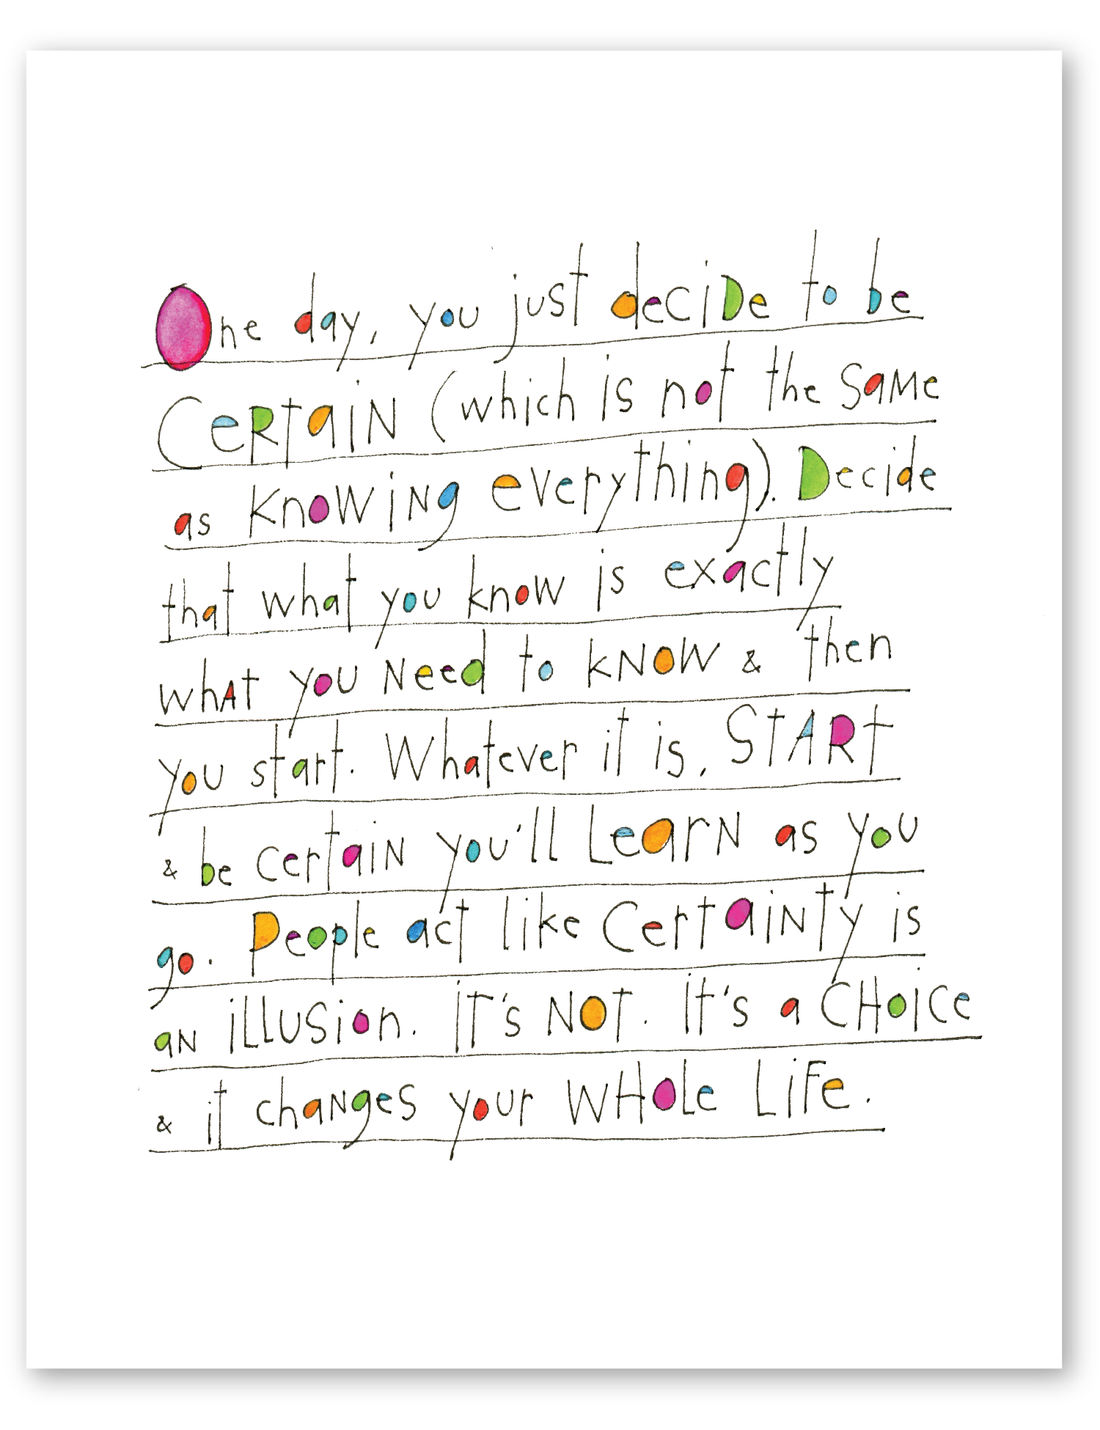 One day, you just deciDe to be
CeRtaiN (which is not the SaMe
as KnoWiNg everything). Decide
that what you know is exactly
whAT yoU Need to kNOW & then
you start. Whatever it is, STARt
& be certaiN you'll LearN as yoU
go. People act like CertaiNty is
aN iLLUSion. iT's NOT. it's a CHoice
& it chaNges your WHOLe LiFe.